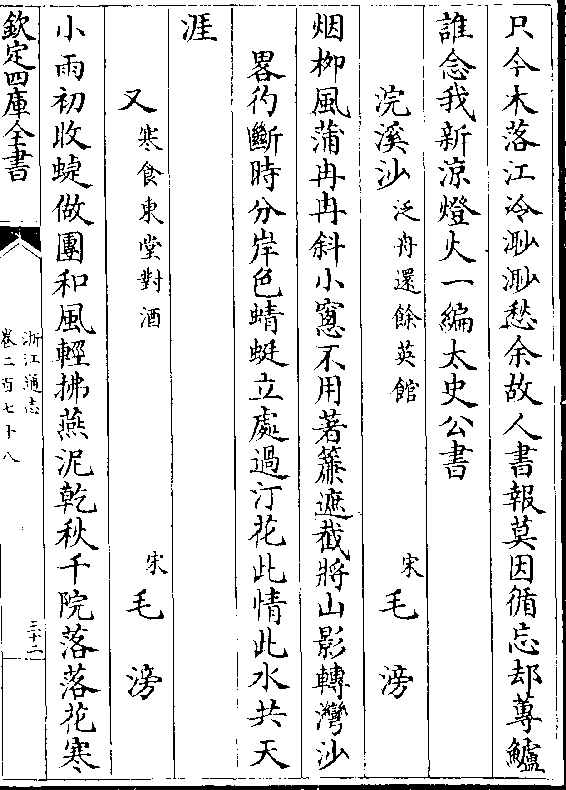 只今木落江冷渺渺愁余故人書報莫因循忘却蓴鱸
誰念我新涼燈火一編太史公書
浣溪沙 泛舟還餘英館 宋 毛滂
烟柳風蒲冉冉斜小窻不用著簾遮截將山影轉灣沙
畧彴斷時分岸色蜻蜓立處過汀花此情此水共天
涯
又 寒食東堂對酒 宋 毛滂
小雨初收蜨做團和風輕拂燕泥乾秋千院落落花寒
欽定四庫全書
浙江通志
卷二百七十八
三十二